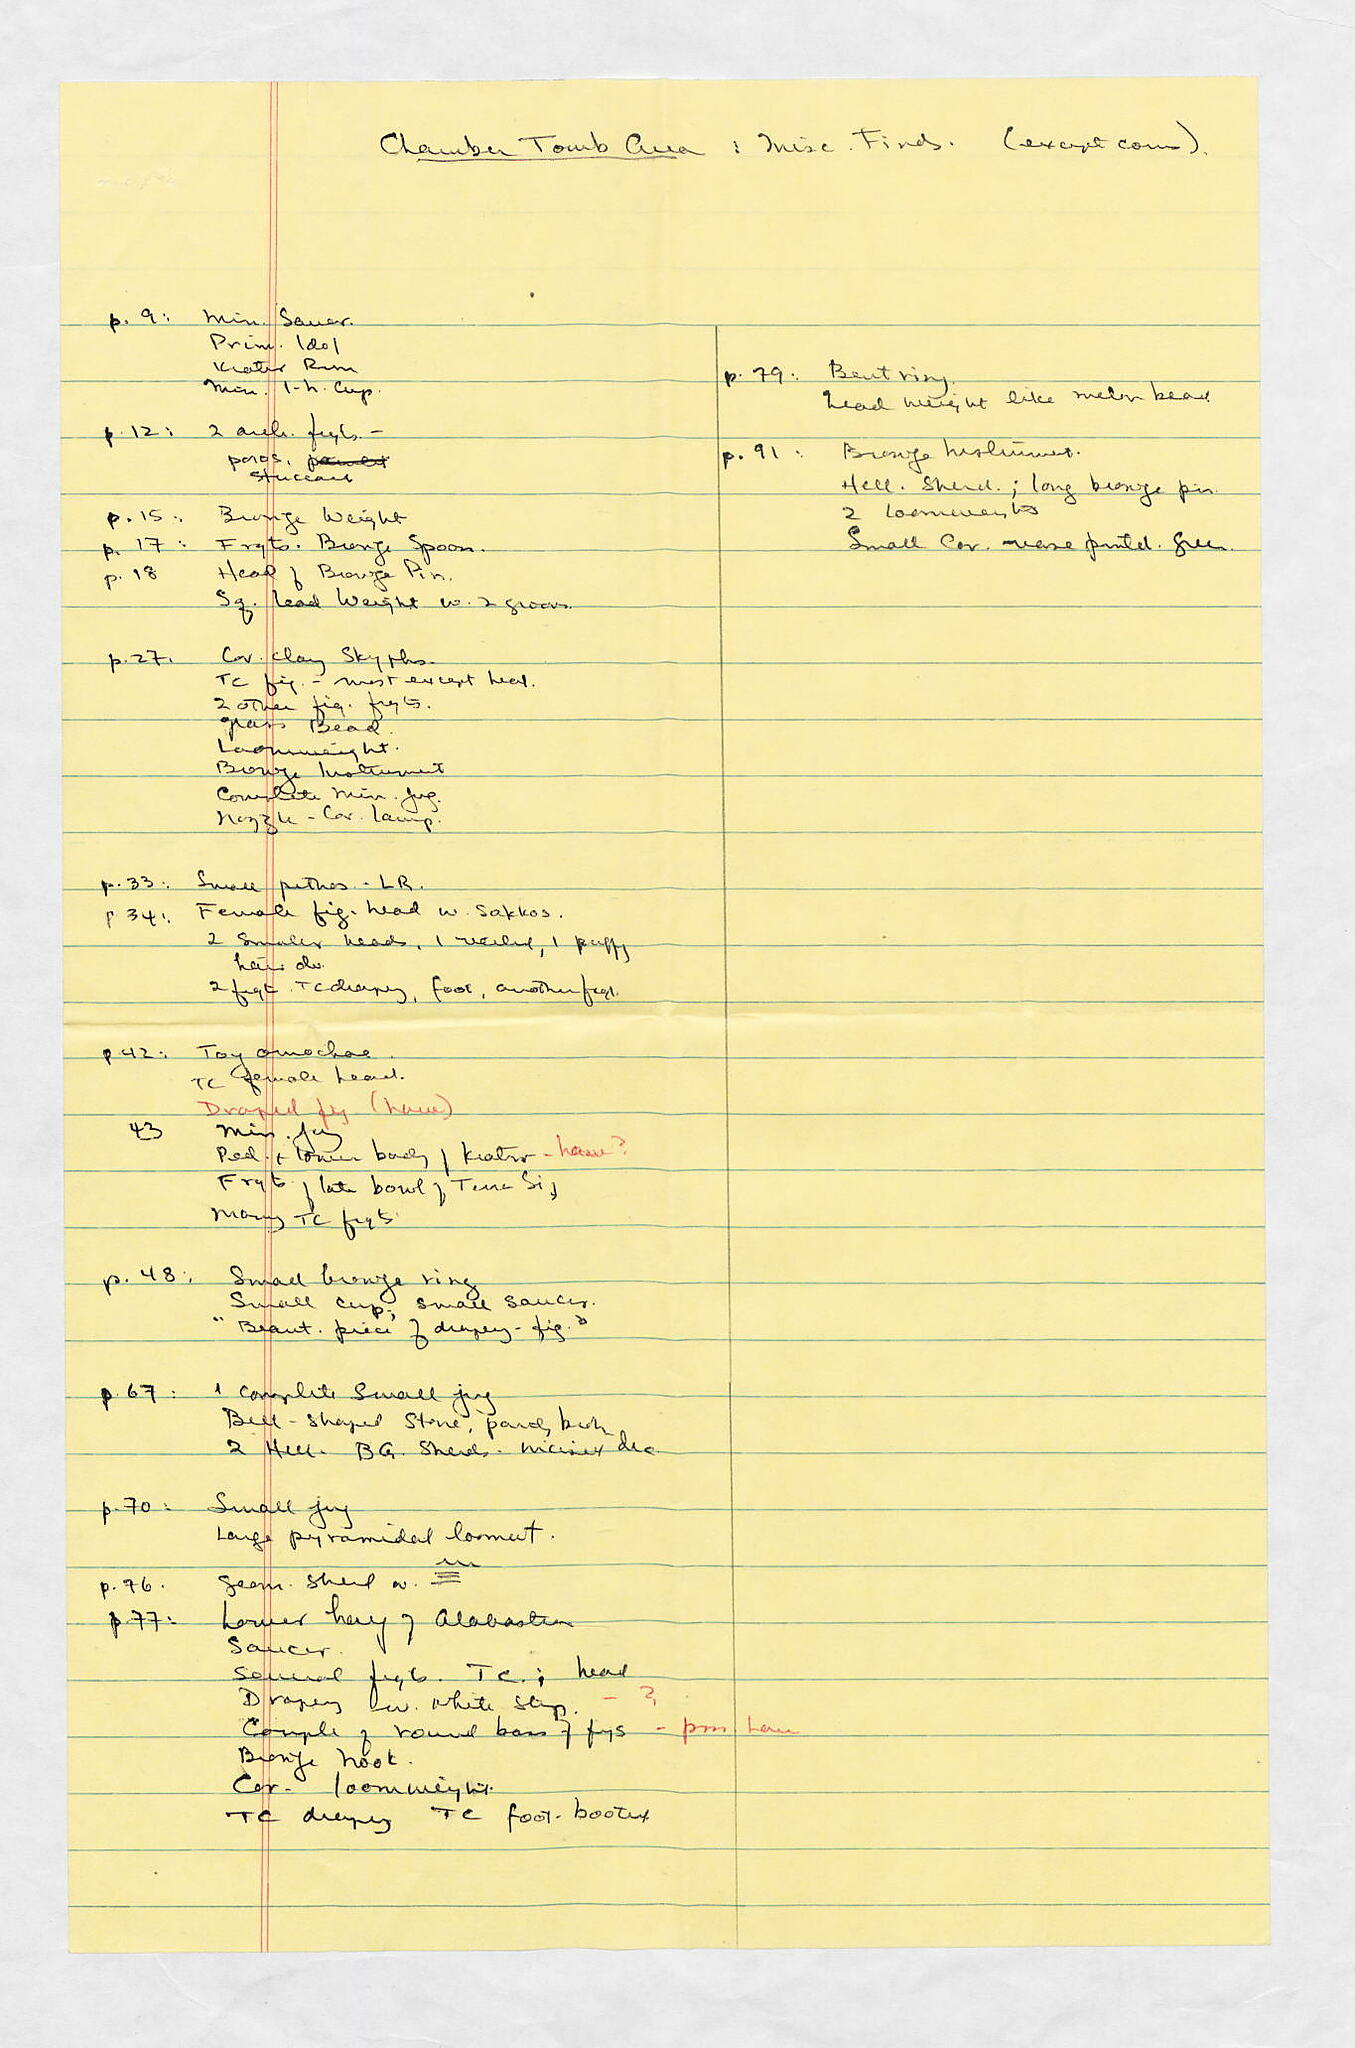 Chamber Tomb Area : Misc. Finds. (except coins).
p. 9: Min. Saucer.
Prim. Idol
Krater Rim
Min. 1-h. Cup.
p. 12: 2 arch. frgts. -
poros,
stuccoed
p. 15: Bronze Weight
p. 17: Frgts. Bronze Spoon.
p. 18 Head of Bronze Pin.
Sq. lead Weight w. 2 grooves.
p. 27. Cor. clay Skyphos.
TC fig. - most except head.
2 other fig. frgts.
glass Bead.
Loomweight.
Bronze Instrument
Complete Min. Jug.
Nozzle - Cor. lamp.
p. 33: Small pithos - LR.
p 34: Female fig. head w. Sakkos.
2 Smaller heads, 1 veiled, 1 puffy
hair do.
2 frgt. TC drapery, foot, another frgt.
p 42: Toy oinochoe.
TC female head.
Draped fig (have)
43 Min. Jug
Ped. + lower body of Krater - have?
Frgts of late bowl of Terra Sig
Many TC frgts
p. 48: Small bronze ring
Small cup; small saucer.
"Beaut. piece of drapery - fig."
p. 67: 1 Complete Small jug
Bell-shaped Stone,
2 Hell. BG. Sherds. incised dec
p. 70: Small jug
Large pyramidal loomwt.
p. 76. Geom. Sherd w.
p. 77: Lower half of Alabastron
Saucer.
Several frgts. TC.; head
Drapery w. white slip. - ?
Couple of round bases of figs - poss have
Bronze hook.
Cor. loomweight.
TC drapery TC foot-booted
p. 79: Bent ring.
lead weight like melon bead
p. 91: Bronze Instrument.
Hell. Sherd.; long bronze pin
2 loomweights
Small Cor. vase pntd. green.